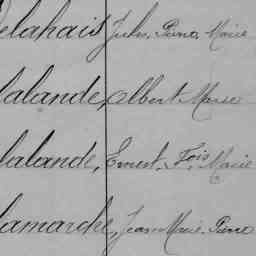 Delahais, Jules, Pierre, Marie
Lalande, Albert Marie
Lalande, Ernest, Fois, Marie
Lamardelé, Jean Marie, Pierre